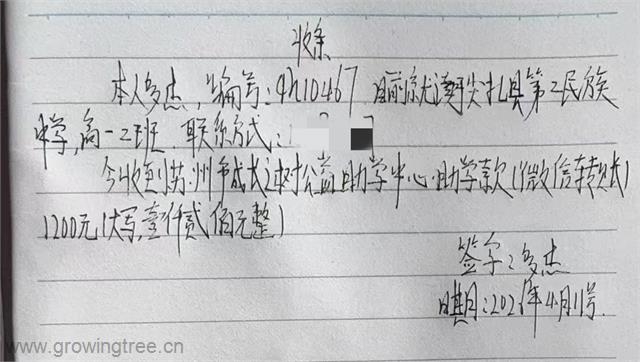 收条
本人多杰,编号:qh10467 目前就读尖扎县第二民族
中学,高一2班.联系方式:1
今收到苏州市成长树公益助学中心助学款(微信转账)
1200元(大写,壹仟贰佰元整)
签字:多杰
日期:202年4月1号.
www.growingtree.cn